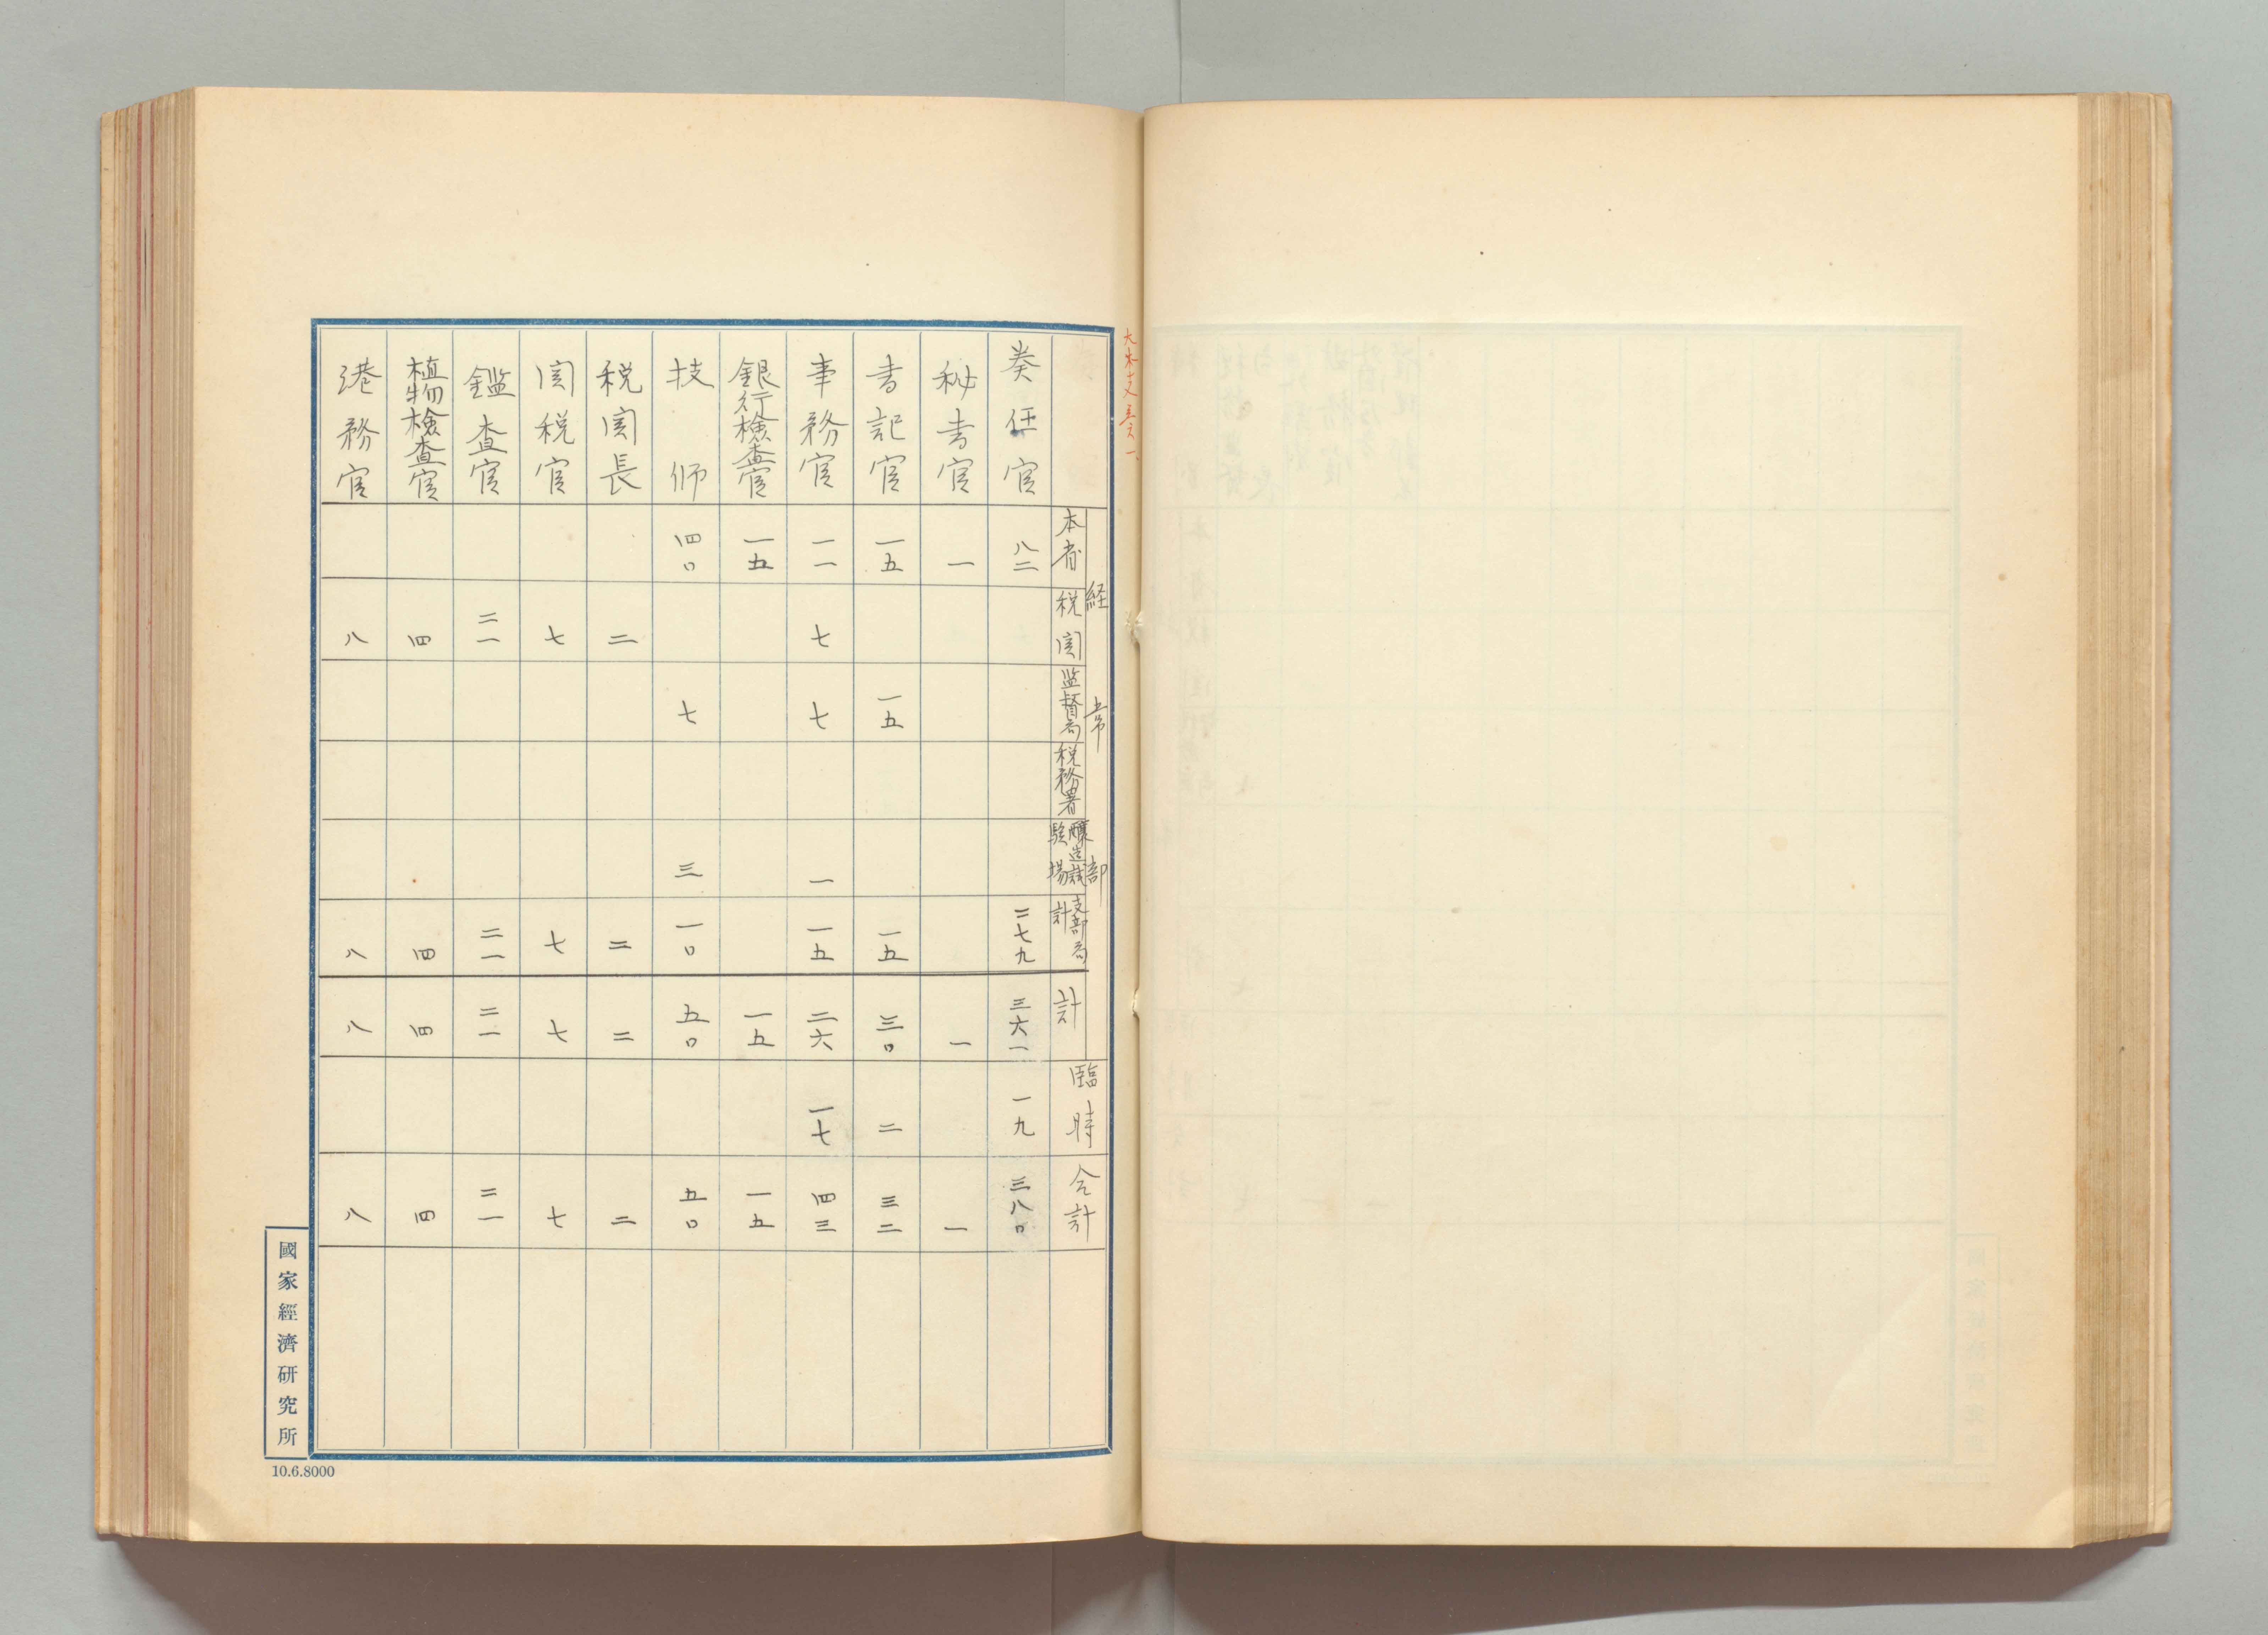 経常部
本省
税関
監督局
税務署
醸造試験場
支部局計
計
臨時
合計
奏任官
八二
二七九
三六一
一九
三八〇
秘書官
一
一
一
書記官
一五
一五
一五
三〇
二
三二
事務官
一一
七
七
一
一五
二六
一七
四三
銀行検査官
一五
一五
一五
技師
四〇
七
三
一〇
五〇
五〇
税関長
二
二
二
二
関税官
七
七
七
七
鑑査官
二一
二一
二一
二一
植物検査官
四
四
四
四
港務官
八
八
八
八
國家經濟研究所
10.6.8000